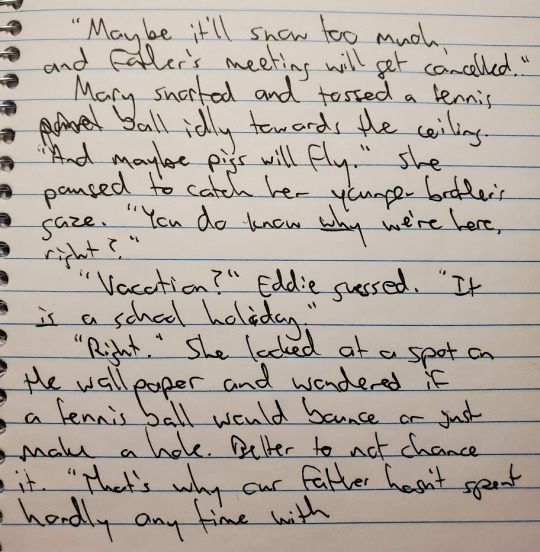 "Maybe it'll snow too much,
and Father's meeting will get cancelled."
Mary snorted and tossed a tennis
ball idly towards the ceiling.
"And maybe pigs will fly." She
paused to catch her younger brother's
gaze. "You do know why we're here,
right?"
"Vacation?" Eddie guessed. "It
is a school holiday."
"Right." She looked at a spot on
the wallpaper and wondered if
a tennis ball would bounce or just
make a hole. Better to not chance
it. "That's why our father hasn't spent
hardly any time with